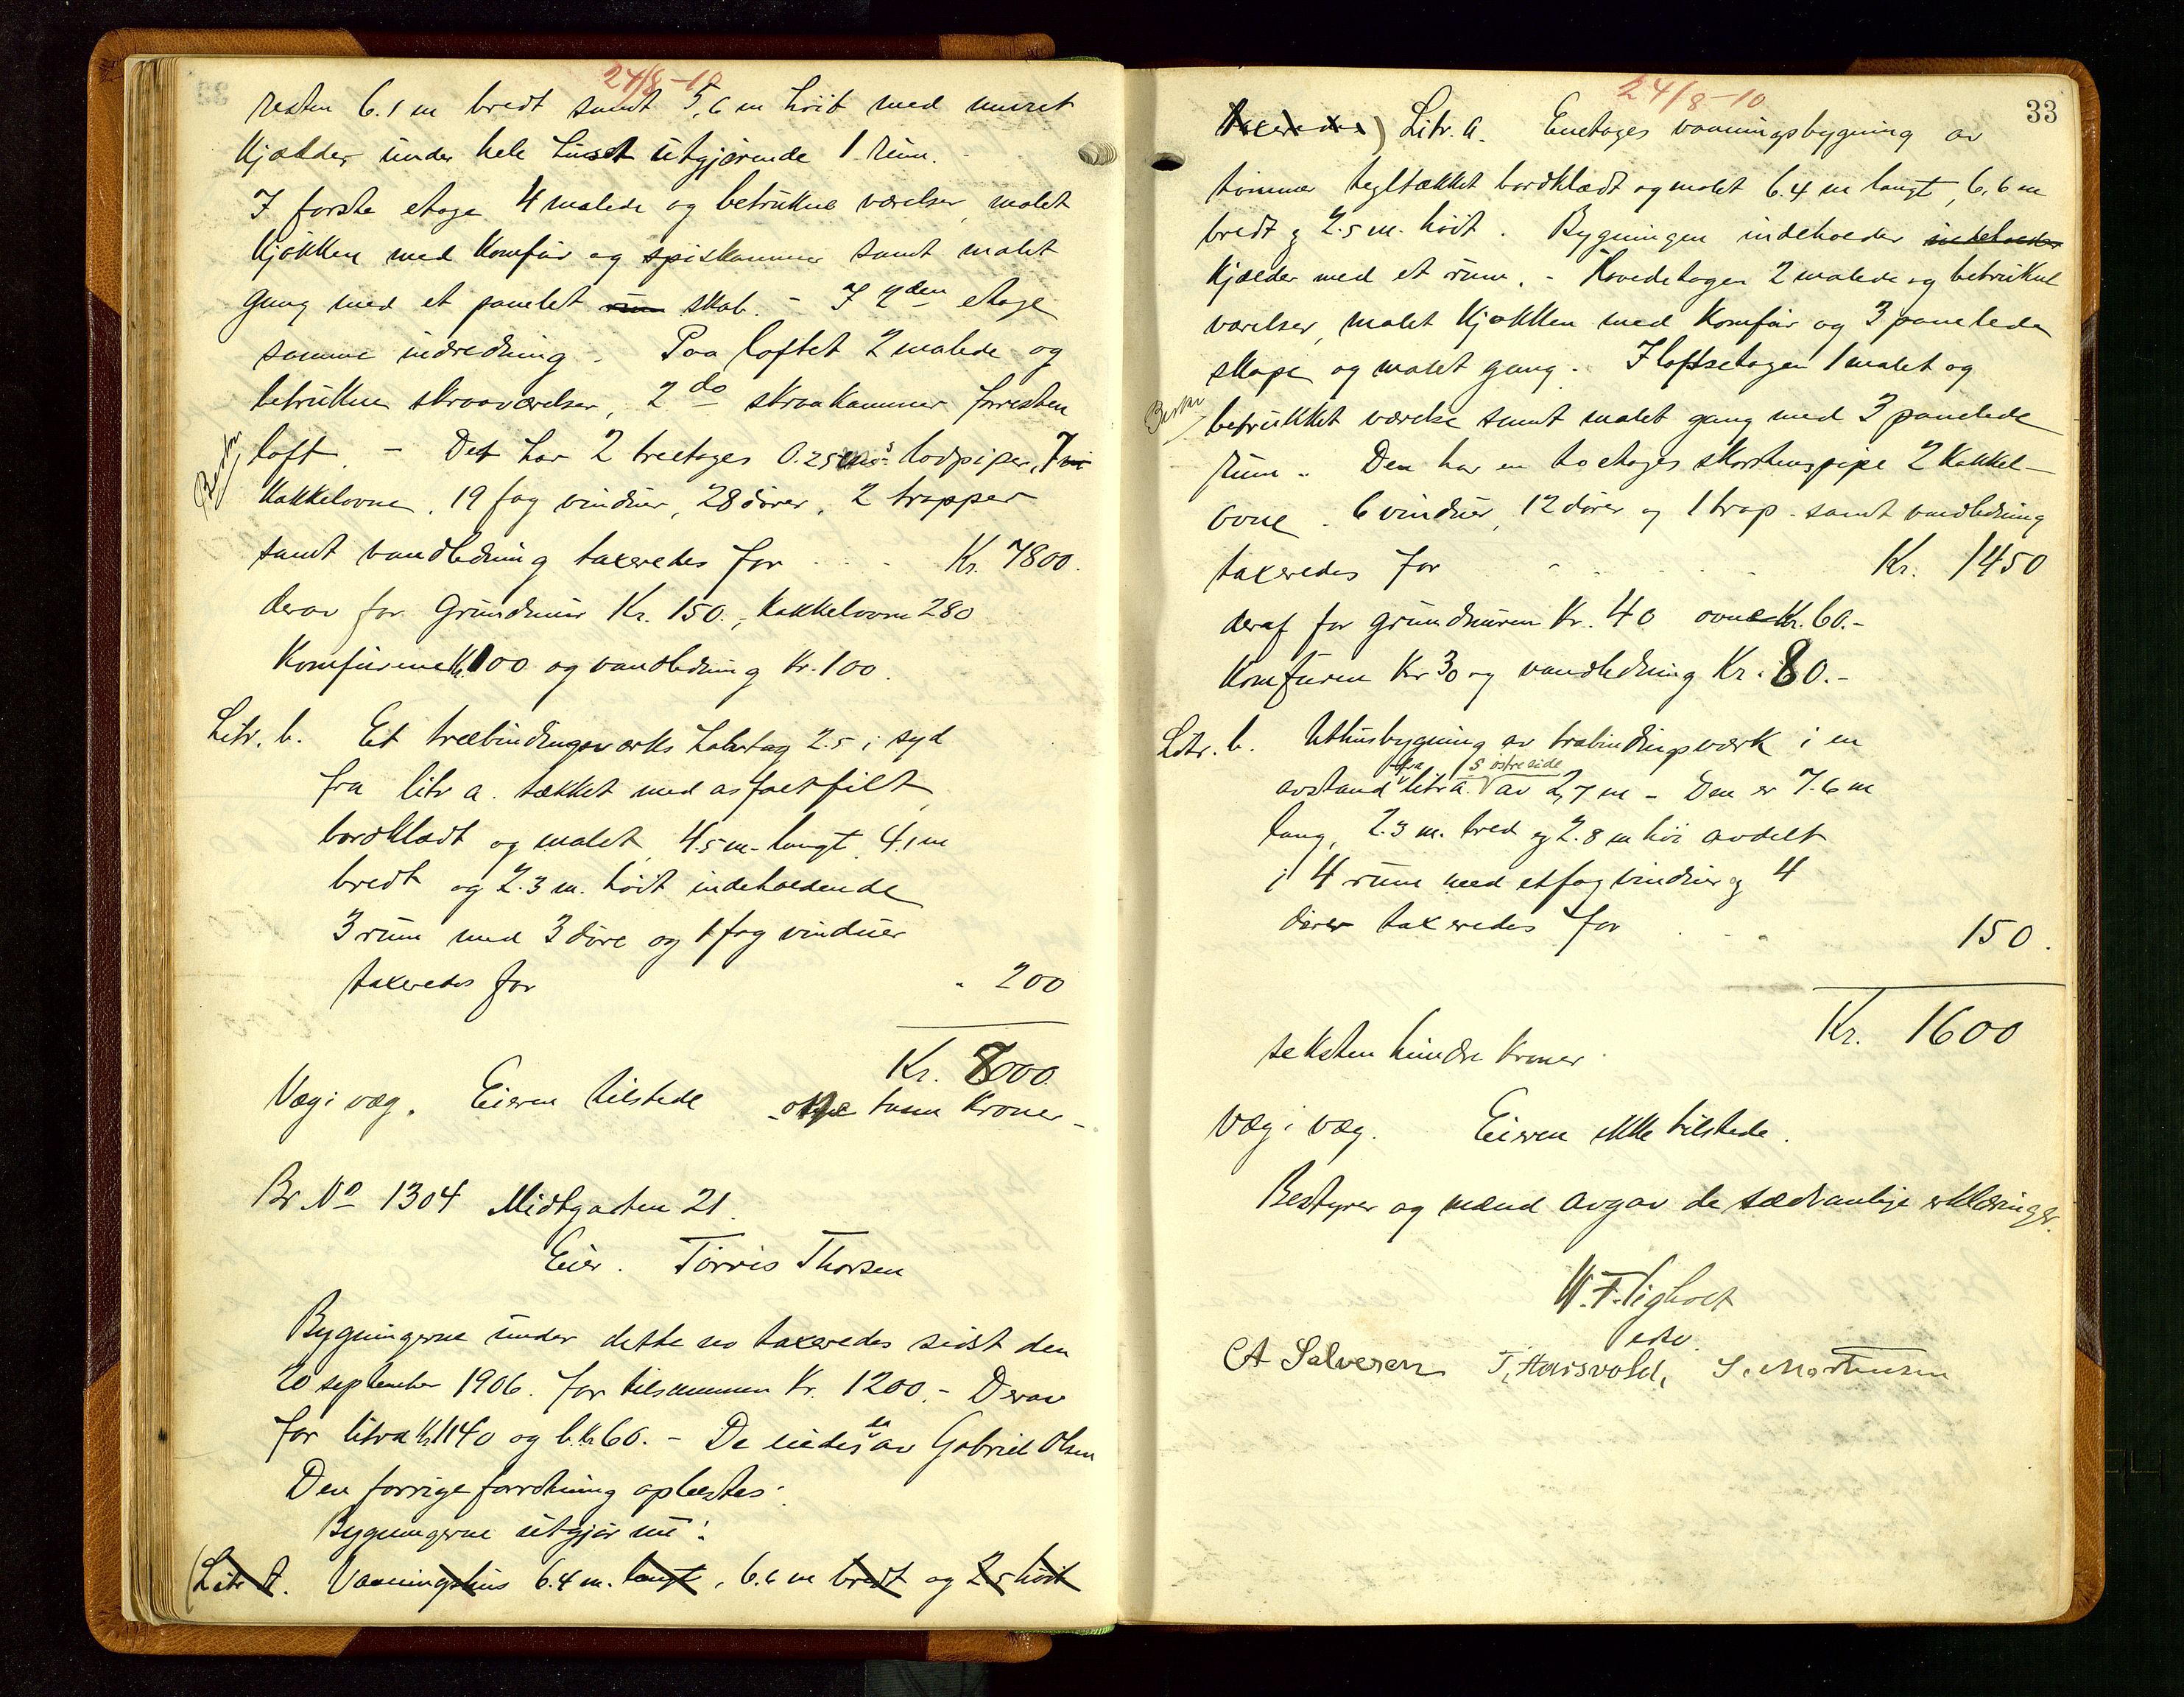 24/8-10
resten 6.1 m bredt samt 5,6 m høit med muret
kjælder under hele huset utgjørende 1 rum. -
I første etage 4 malede og betrukne værelser, malet
kjøkken med komfur og spiskammer samt malet
gang med et panelet rum skab. - I 2den etage
samme indredning. Paa loftet 2 malede og
betrukne skraaværelser, 2 do skraakammer forresten
loft. - Det har 2 treetages 0.25 lodpiper, 7
kakkelovne, 19 fag vinduer, 28 dører, 2 trapper
samt vandledning taxeredes for . . . Kr. 7800.
derav for Grundmur Kr. 150., kakkelovne 280
Komfurene Kr. 100 og vandledning Kr. 100.
Litr. b. Et træbindingsværks halvtag 2.5 i syd
fra litr a. tækket med asfaltfilt,
bordklædt og malet, 4.5 m. langt, 4.1 m
bredt og 2.3 m. høit indeholdende
3 rum med 3 døre og 1 fag vinduer
taxeredes for " 200
Kr. 8000.
Væg i væg. Eieren tilstede - otte tusen Kroner -
Br. No 1304 Midtgaten 21.
Eier. Tørris Thorsen
Bygningerne under dette no taxeredes sidst den
20 september 1906. for tilsammen Kr. 1200. - Derav
for litra Kr. 1140 og b. Kr. 60. - De eiedes da av Gabriel Olsen
Den forrige forretning oplæstes.
Bygningerne utgjør nu:
(Litr A. Vaaningshus 6.4 m. langt, 6.6 m bredt og 2.5 høit
24/8-10
33
taxeredes) Litr. a. Enetages vaaningsbygning av
tømmer tegltækket bordklædt og malet 6.4 m langt, 6,6 m
bredt og 2.5 m. høit. Bygningen indeholder indeholder
Kjælder med et rum. - Hovedetagen 2 malede og betrukne
værelser, malet kjøkken med Komfur og 3 panelede
skape og malet gang. I loftsetagen 1 malet og
betrukket værelse samt malet gang med 3 panelede
rum. Den har en toetages skorstenspipe 2 kakkel-
ovne. 6 vinduer, 12 dører og 1 trap. samt vandledning
taxeredes for Kr. 1450
deraf for grundmuren Kr. 40 ovne Kr. 60.-
Komfuren Kr 30 og vandledning Kr. 80.-
Litr. b. Uthusbygning av træbindingsværk i en
avstand fra litr a.s østre side av 2,7 m - Den er 7.6 m
lang, 2.3 m. bred og 2.8 m høi avdelt
i 4 rum med et fag vinduer og 4
dører taxeredes for 150.
Kr. 1600
seksten hundre kroner.
Væg i væg. Eieren ikke tilstede.
Bestyrer og mænd avgav de sædvanlige erklæringer.
CA Salvesen